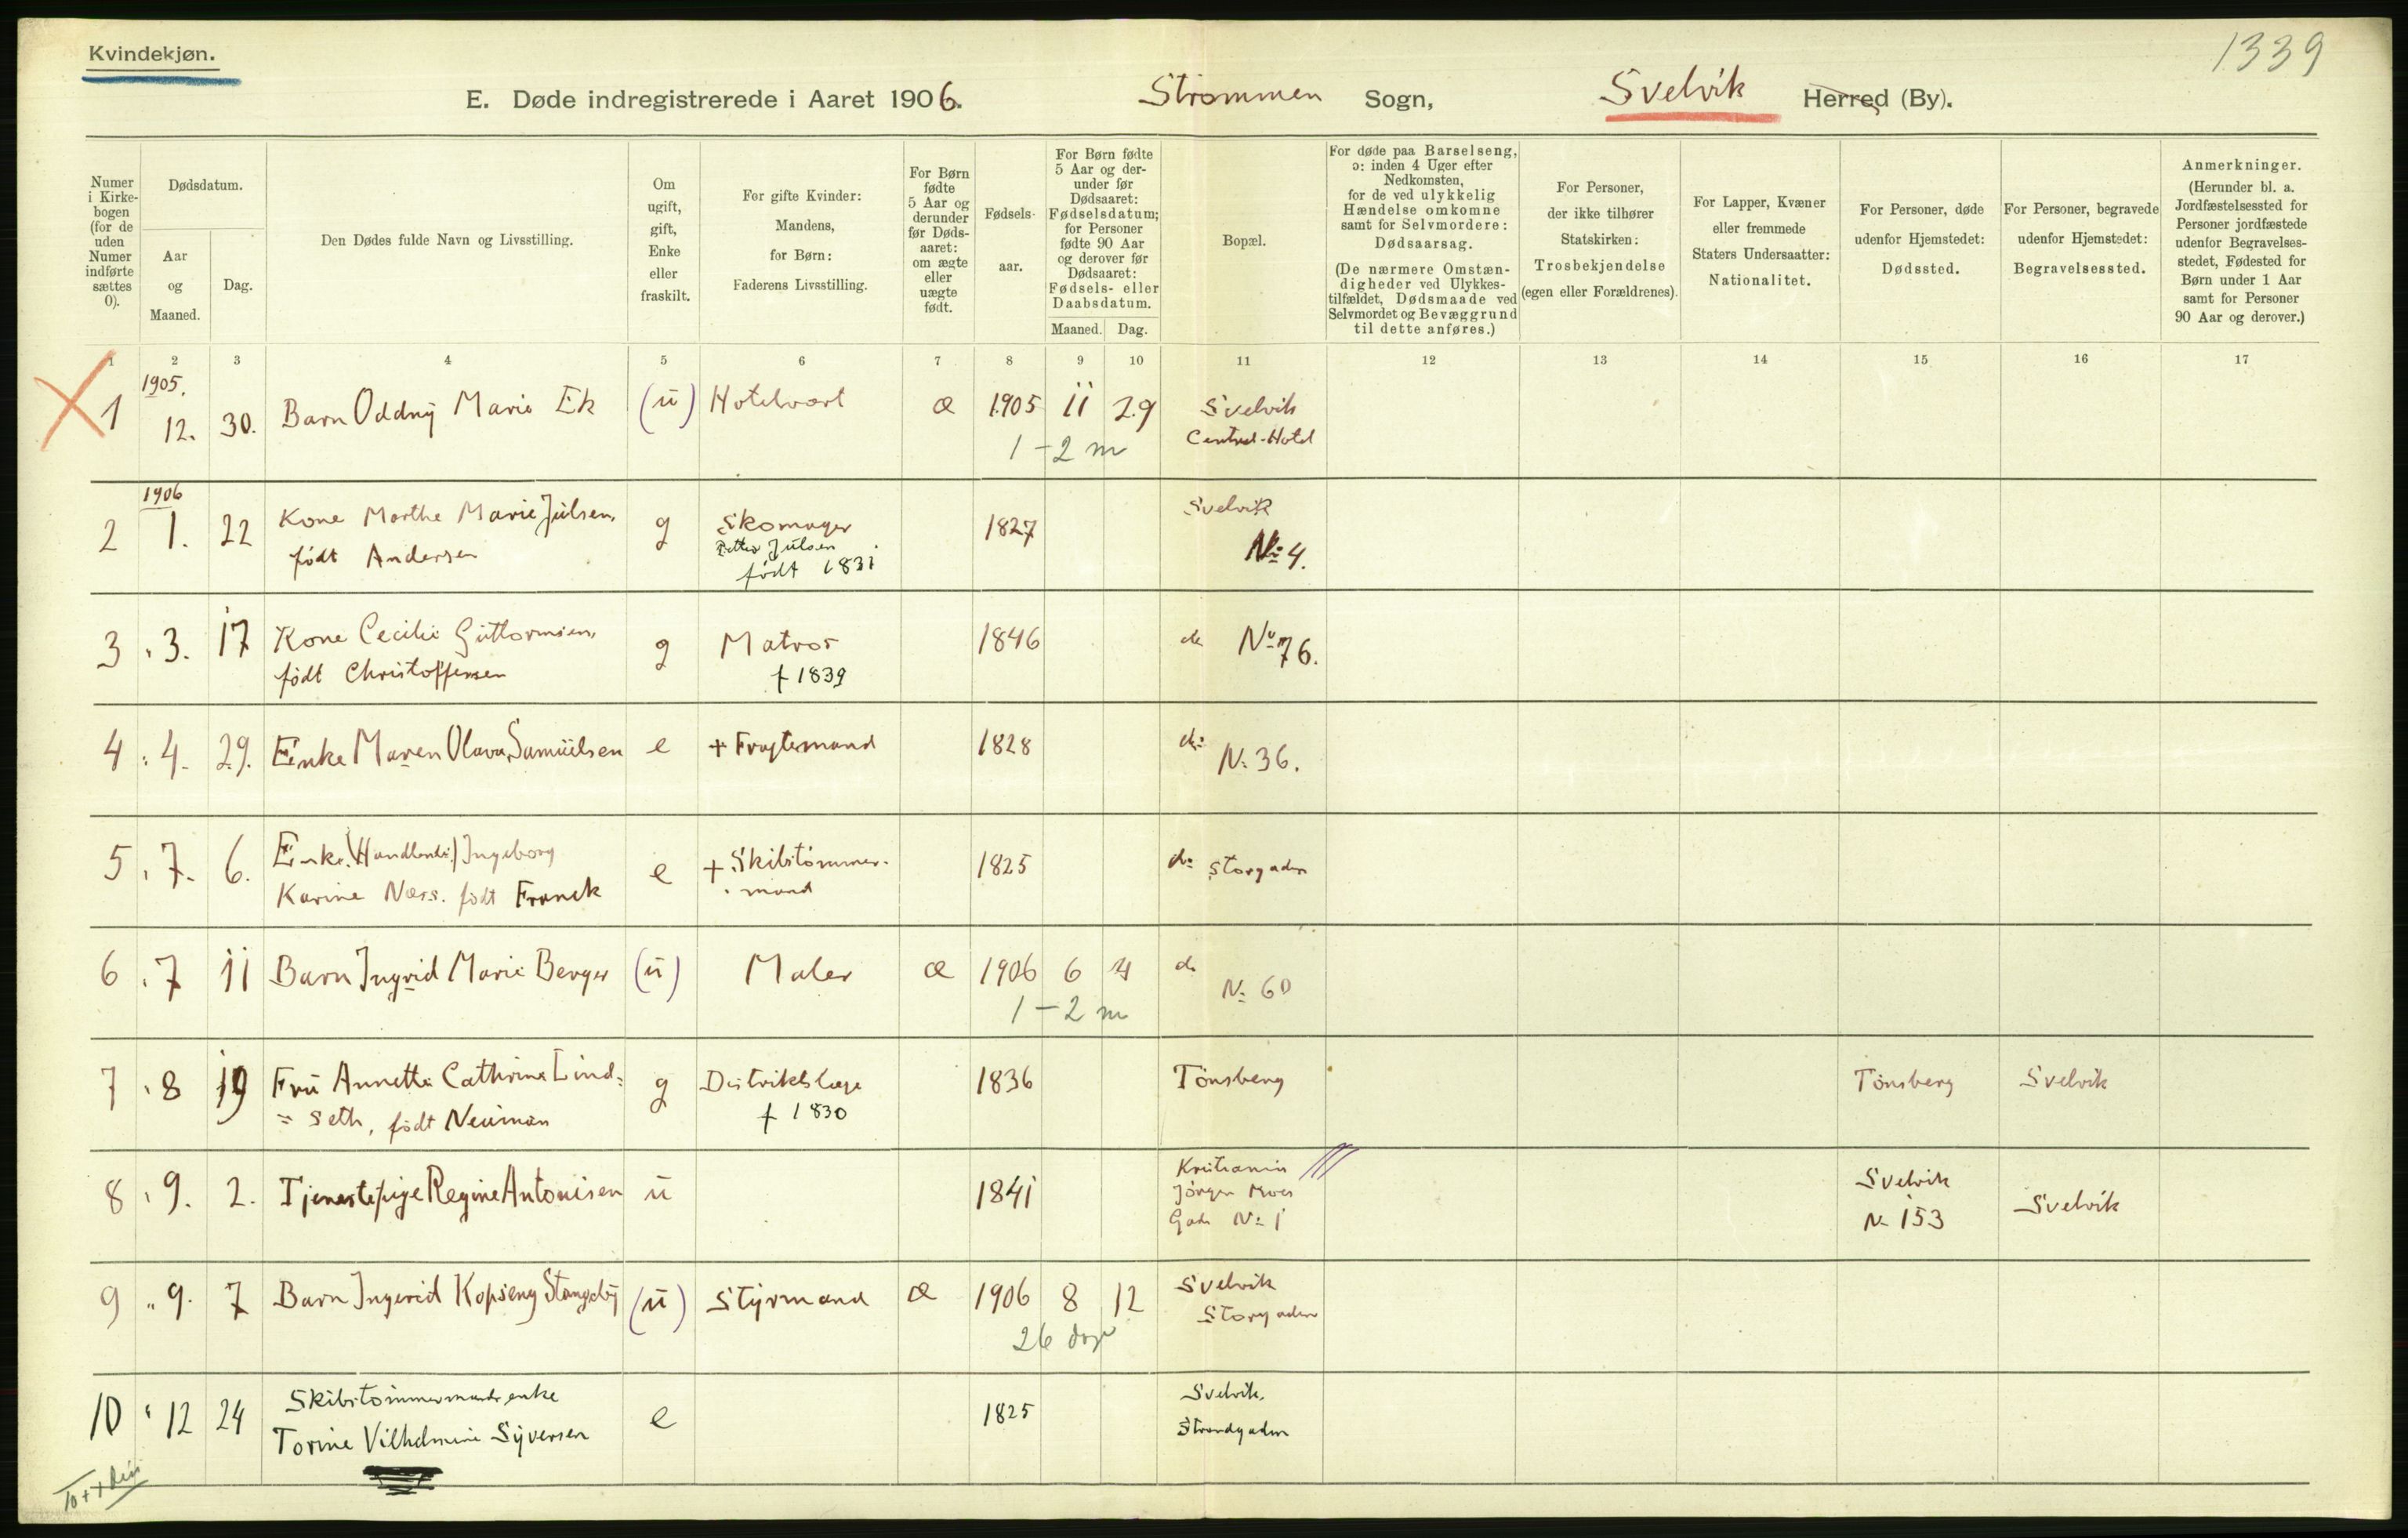 Kvindekjøn.
1339
E. Døde indregistrerede i Aaret 1906. Strømmen Sogn, Svelvik Herred (By).
Numer i Kirkebogen (for de uden Numer indførte sættes 0).
Dødsdatum.
Aar og Maaned.
Dag.
Den Dødes fulde Navn og Livsstilling.
Om ugift, gift, Enke eller fraskilt.
For gifte Kvinder: Mandens, for Børn: Faderens Livsstilling.
For Børn fødte 5 Aar og derunder før Dødsaaret: om ægte eller uægte født.
Fødselsaar.
For Børn fødte 5 Aar og derunder før Dødsaaret: Fødselsdatum; for Personer fødte 90 Aar og derover før Dødsaaret: Fødsels- eller Daabsdatum.
Maaned. Dag.
Bopæl.
For døde paa Barselseng, ɔ: inden 4 Uger efter Nedkomsten, for de ved ulykkelig Hændelse omkomne samt for Selvmordere: Dødsaarsag.
(De nærmere Omstændigheder ved Ulykkestilfældet, Dødsmaade ved Selvmordet og Bevæggrund til dette anføres.)
For Personer, der ikke tilhører Statskirken: Trosbekjendelse (egen eller Forældrenes).
For Lapper, Kvæner eller fremmede Staters Undersaatter: Nationalitet.
For Personer, døde udenfor Hjemstedet: Dødssted.
For Personer, begravede udenfor Hjemstedet: Begravelsessted.
Anmerkninger.
(Herunder bl. a. Jordfæstelsessted for Personer jordfæstede udenfor Begravelsesstedet, Fødested for Børn under 1 Aar samt for Personer 90 Aar og derover.)
1 2 3 4 5 6 7 8 9 10 11 12 13 14 15 16 17
1905.
1 12. 30. Barn Oddny Marie Ek (ü) Hotelvært æ 1905 11 29 Svelvik
Central-Hotel
1-2 m
1906
2 1. 22 Kone Marthe Marie Julsen, g Skomager 1827 Svelvik
født Andersen Petter Julsen No 4.
født 1831
3 " 3. 17 Kone Cecilie Guttormsen, g Matros 1846 do No 76.
født Christoffersen f 1839
4 " 4. 29. Enke Maren Olava Samuelsen e + Fragtemand 1828 do
N: 36.
5 " 7. 6. Enke (Handlende) Ingeborg e + Skibstømmer- 1825 do Storgaden
Karine Næss. født Franck mand
6 " 7 11 Barn Ingrid Marie Berger (ü) Maler æ 1906 6 4 do
N: 60
1-2 m
7 " 8 19 Fru Annette Cathrine Lind= g Distriktslæge 1836 Tønsberg Tönsberg Svelvik
= seth, født Neuman f 1830
8 " 9. 2. Tjenestepige Regine Antonisen ü 1841 Kristiania Svelvik
Jørgen Moes N: 153 Svelvik
Gade No 1
9 " 9. 7 Barn Ingerid Kopseng Stangeby (ü) Styrmand æ 1906 8 12 Svelvik
Storgaden
26 dage
10 " 12 24 Skibstømmermands enke e 1825 Svelvik,
Torine Vilhelmine Syversen Strandgaden